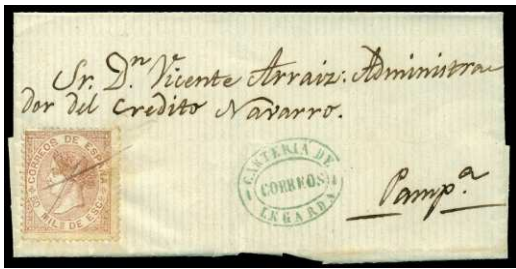 Sr. Dn. Vicente Arraiz: Administra=
dor del Credito Navarro.
CORREOS DE ESPAÑA
50 MILS DE ESCO
CARTERIA DE
CORREOS
LEGARDA
Pampª